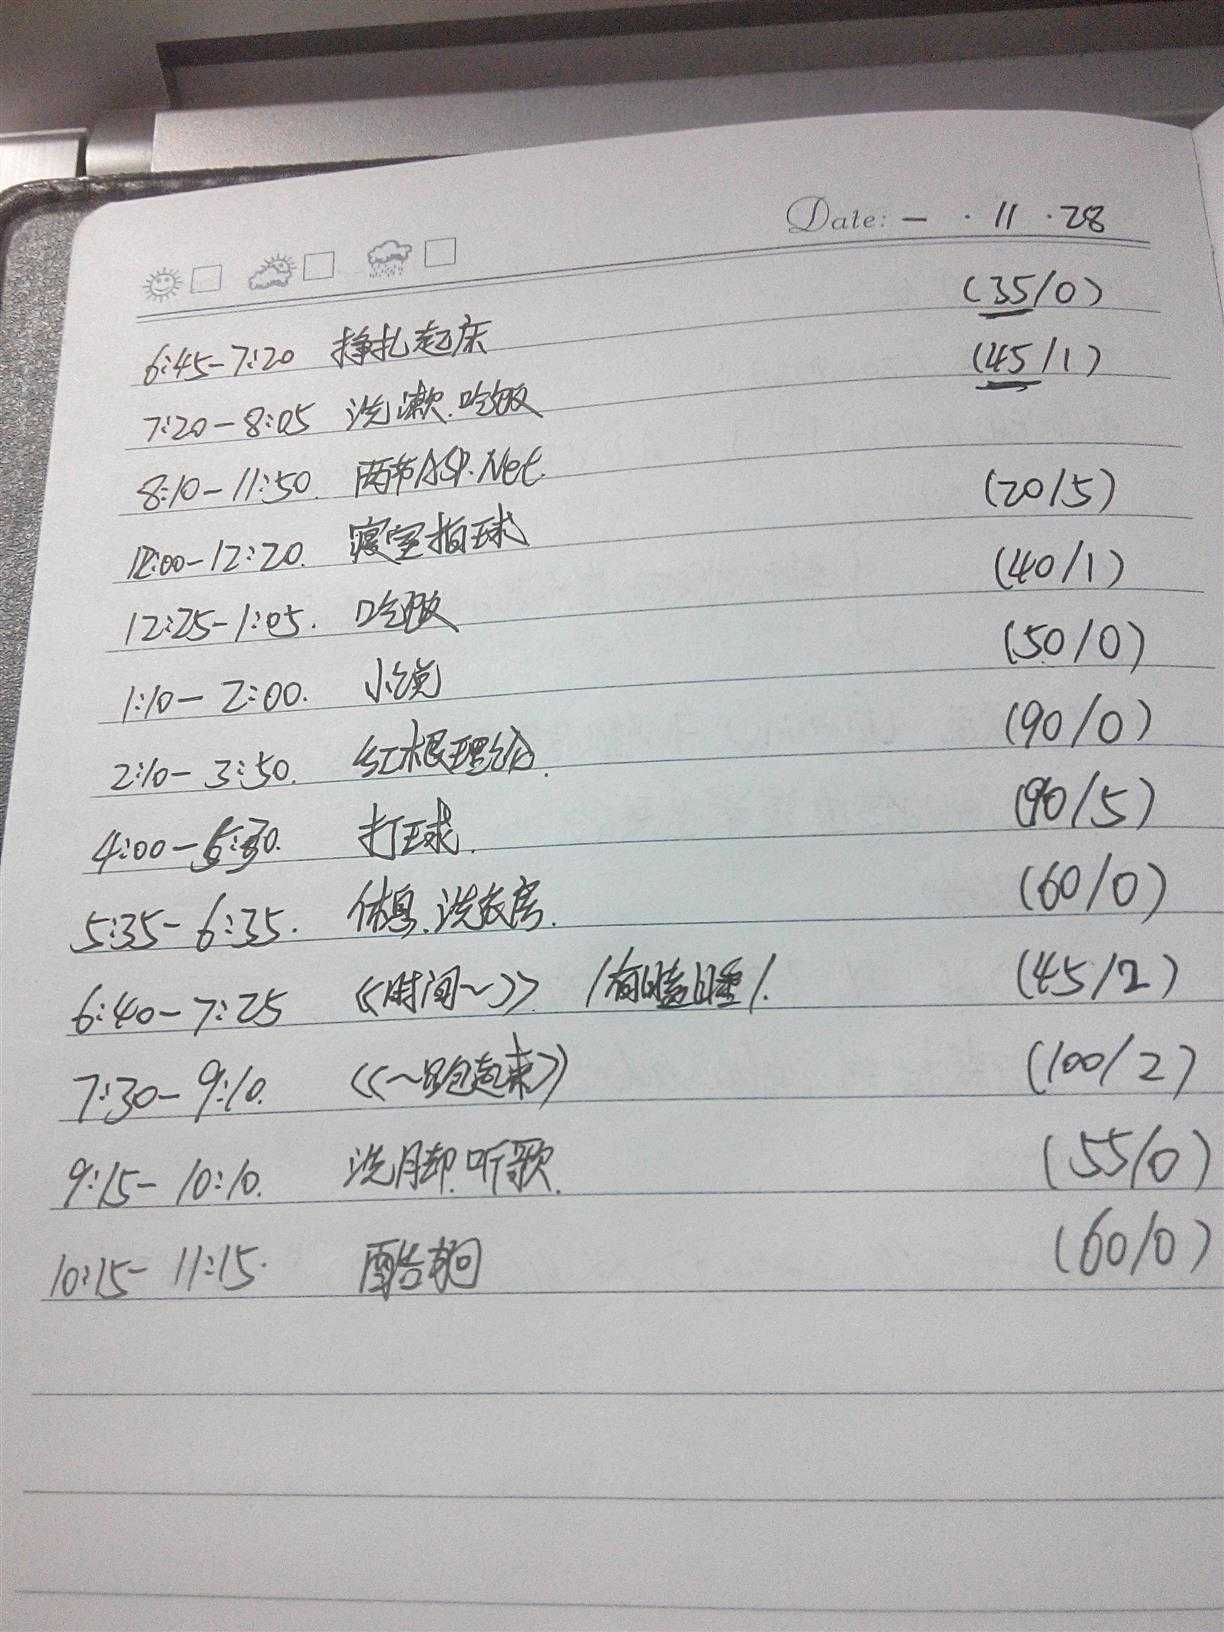 Date: — · 11 · 28
6:45-7:20 挣扎起床 (35/0)
7:20-8:05 洗漱.吃饭 (45/1)
8:10-11:50. 两节ASP.Net.
12:00-12:20. 寝室拍球 (20/5)
12:25-1:05. 吃饭 (40/1)
1:10-2:00. 小说 (50/0)
2:10-3:50. 红根理论. (90/0)
4:00-5:30. 打球. (90/5)
5:35-6:35. 休息.洗衣房. (60/0)
6:40-7:25 《时间~》 /有瞌睡/. (45/2)
7:30-9:10. 《~跑起来》 (100/2)
9:15-10:10. 洗脚.听歌. (55/0)
10:15-11:15. 酷狗 (60/0)